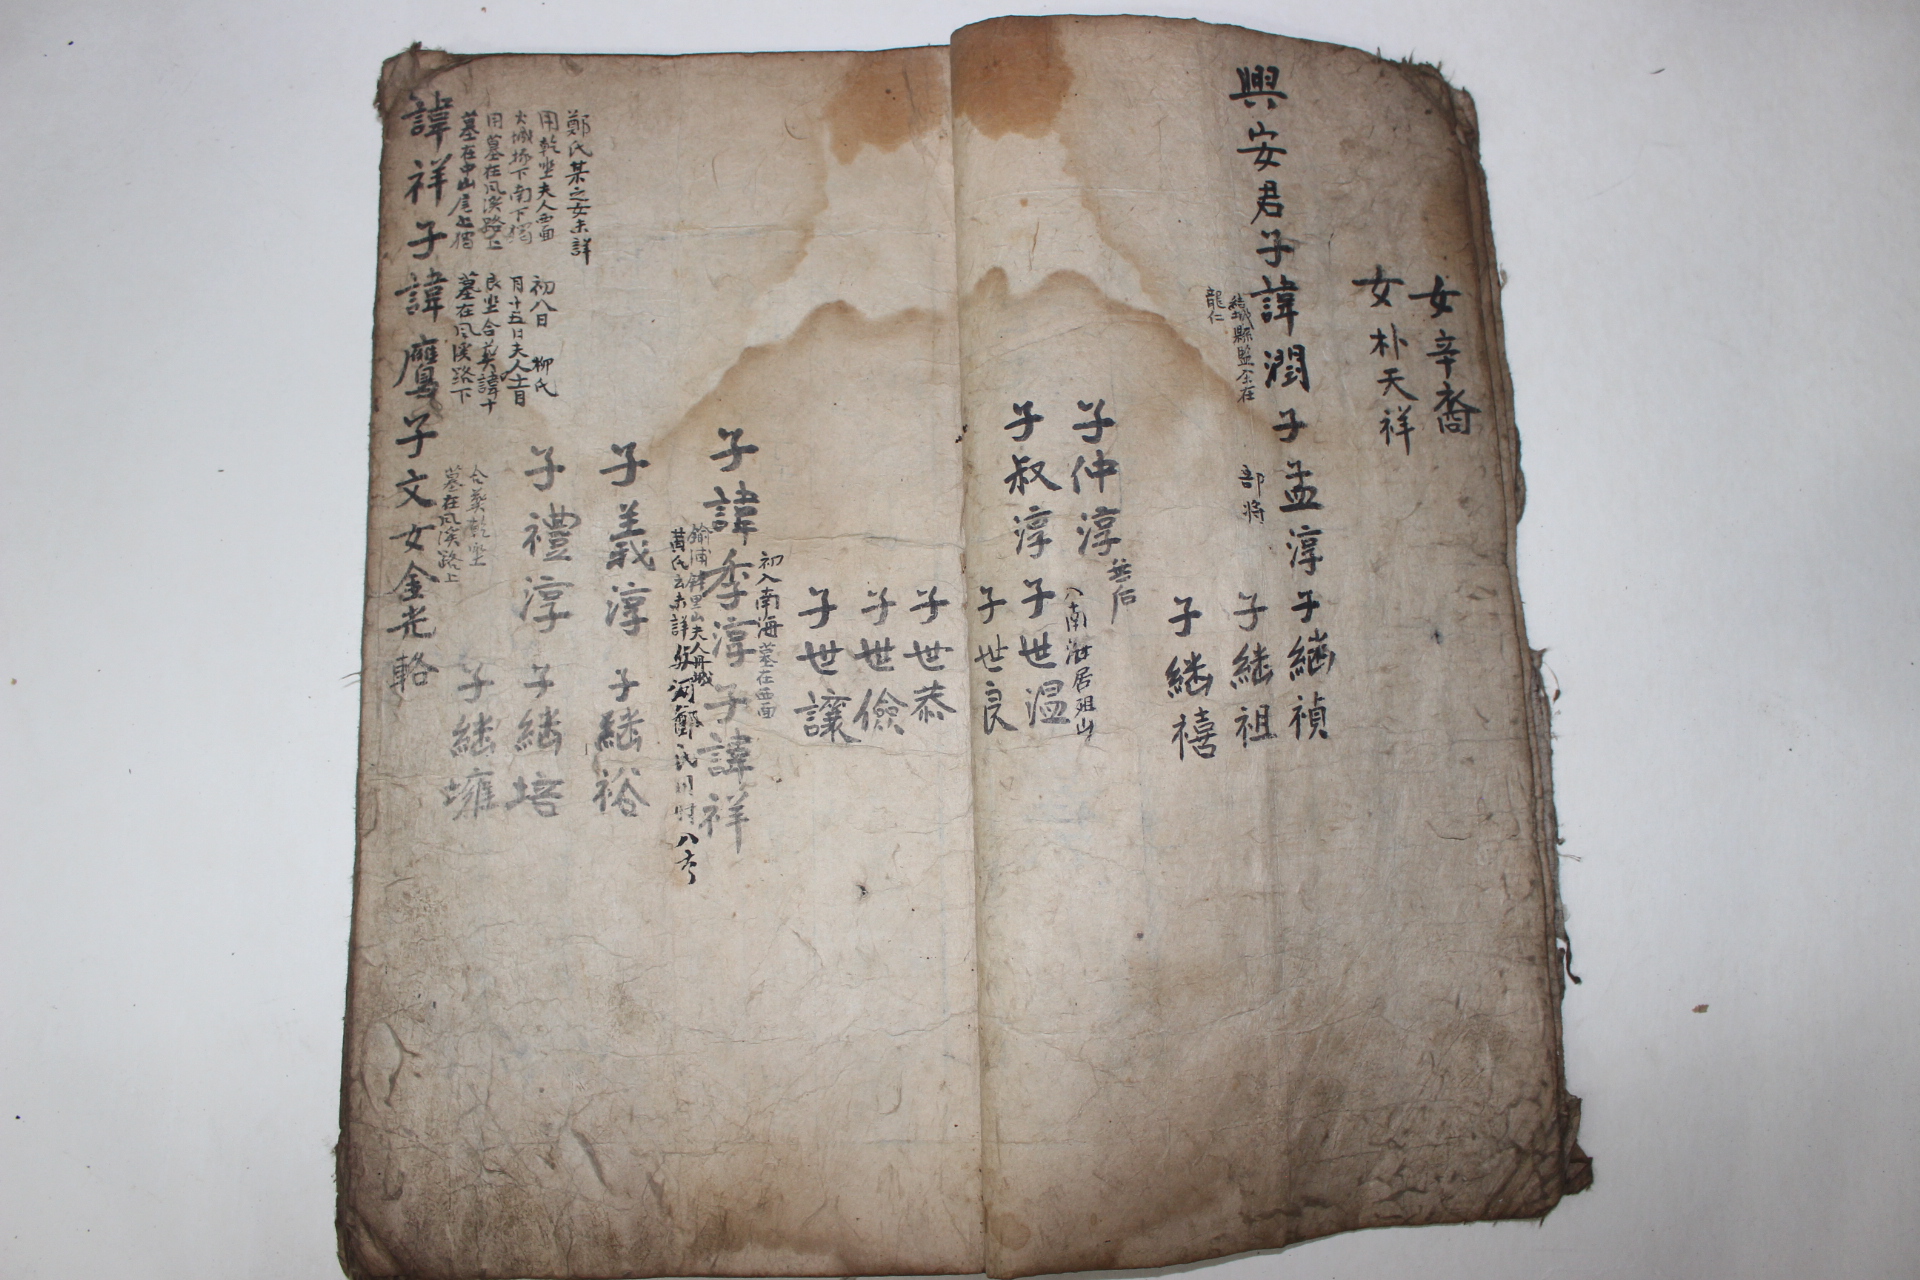 女辛裔
女朴天祥
興安君子諱潤子孟淳子繼禎
結城縣監 在
龍仁
部將
子繼祖
子繼禧
子仲淳無后
子叔淳子世温
入南海居 山
子世良
子世恭
子世儉
子世讓
初入南海墓在西面
子諱季淳子諱祥
里山夫人丹城
氏云未詳 河鄭氏同時入去
子義淳子繼裕
子禮淳子繼培
子繼壅
鄭氏某之女未詳
用乾坐夫人西面
火城橋下南下獨
用墓在風溪路上
墓在中山尾 獨
初八日 柳氏
月十五日夫人十二月
艮坐合葬諱十
墓在風溪路下
合葬乾坐
墓在風溪路上
諱祥子諱鷹子文女金光輅